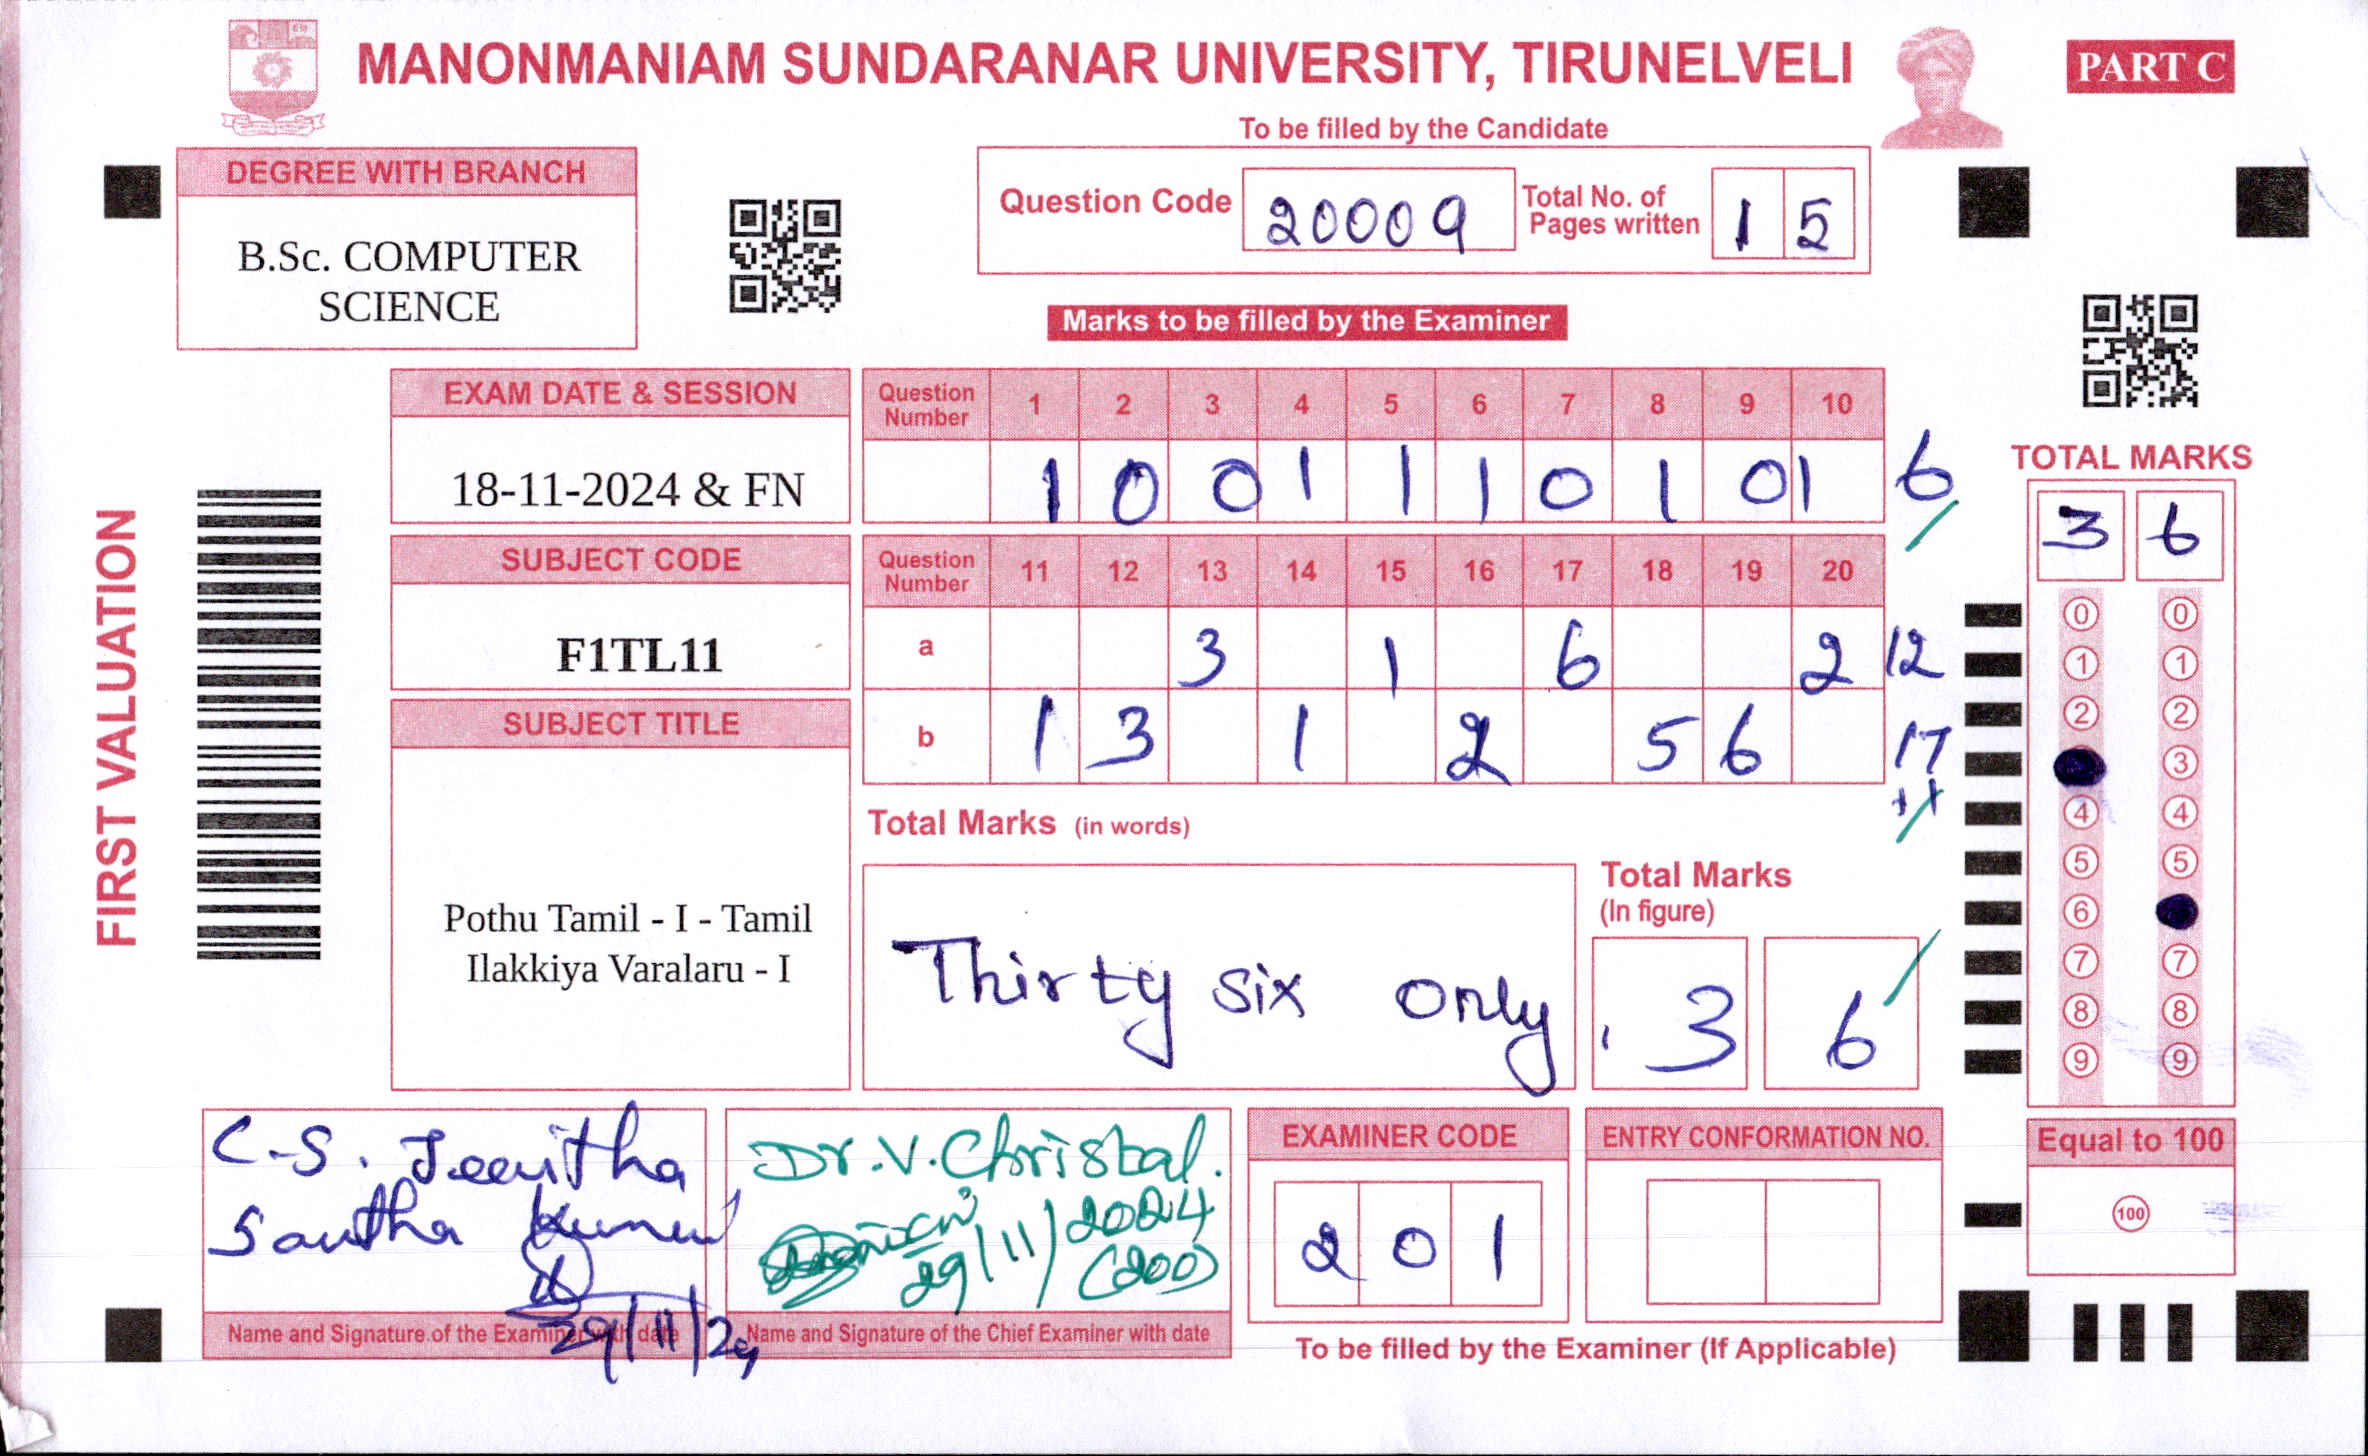 MANONMANIAM SUNDARANAR UNIVERSITY, TIRUNELVELI
PART C
To be filled by the Candidate
DEGREE WITH BRANCH
B.Sc. COMPUTER
SCIENCE
Question Code 20009 Total No. of Pages written 1 5
Marks to be filled by the Examiner
FIRST VALUATION
EXAM DATE & SESSION
18-11-2024 & FN
SUBJECT CODE
F1TL11
SUBJECT TITLE
Pothu Tamil - I - Tamil
Ilakkiya Varalaru - I
Question Number 1 2 3 4 5 6 7 8 9 10
1 0 0 1 1 1 0 1 0 1 6
Question Number 11 12 13 14 15 16 17 18 19 20
a 3 1 6 2 12
b 1 3 1 2 5 6 17
Total Marks (in words)
Thirty six only.
Total Marks
(In figure)
3 6
TOTAL MARKS
3 6
0 0
1 1
2 2
3
4 4
5 5
6
7 7
8 8
9 9
Equal to 100
100
C.S. Jeevitha
Santha
29/11/24
Name and Signature of the Examiner with date
Dr. V. Christal.
29/11/2024
(200)
Name and Signature of the Chief Examiner with date
EXAMINER CODE
2 0 1
ENTRY CONFORMATION NO.
To be filled by the Examiner (If Applicable)